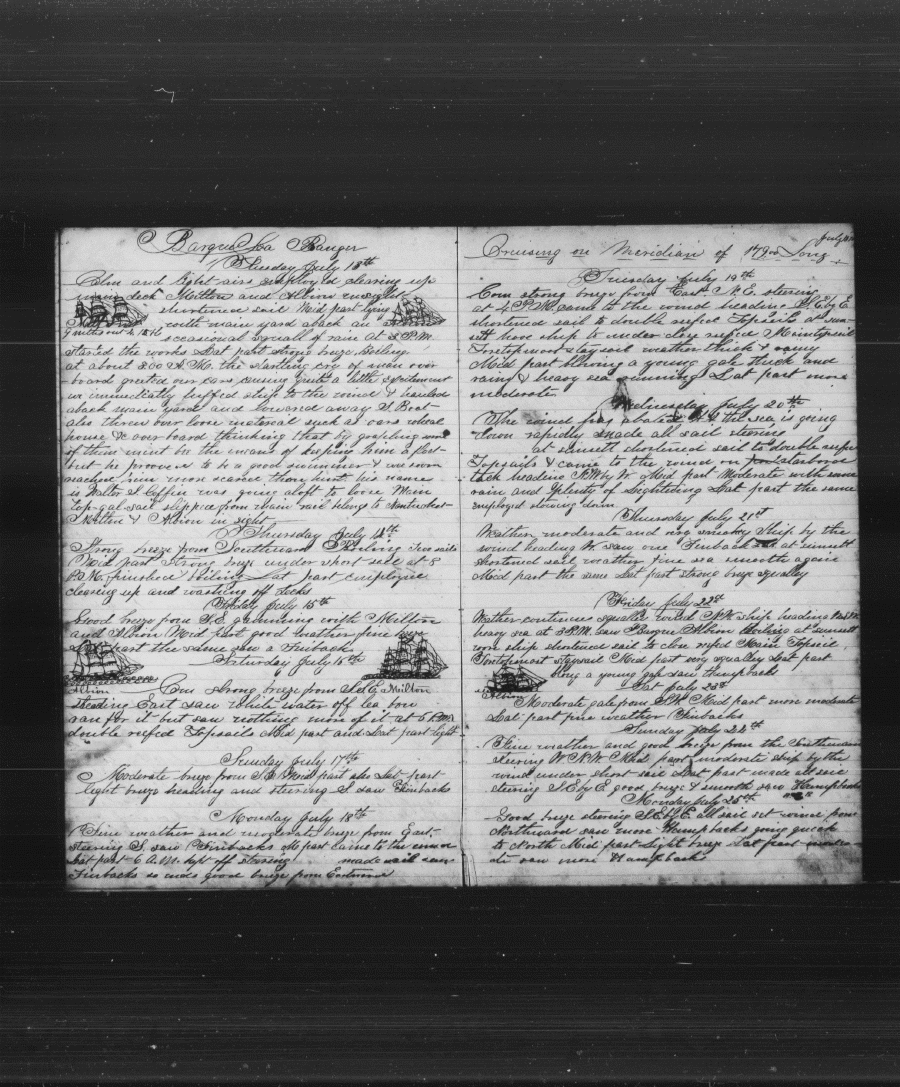 Barque Sea Ranger
Tuesday July 13th
Calm and light airs employed clearing up
deck Milton and Albion in sight
shortened sail Mid part lying
with main yard aback an
occasional squall of rain at 2 P.M.
started the works Lat part strong breeze Boiling
at about 3.00 A.M. the startling cry of man over
-board greeted our ears causing quite a little excitement
we immediatly luffed ship to the wind & hauled
aback main yards and lowered away S. Boat
also threw over loose material such as oars wheel
house &c over board thinking that by grasping some
of them mint be the means of keeping him a float
but he prooved to be a good swimmer & we soon
reached him more scared than hurt his name
is Walter S Coffin was going aloft to loose Main
top-gal-sail slipped from main rail belongs to Nantucket
Milton & Albion in sight
Thursday July 14th
Strong breeze from Southward Boiling Two sails
Mid part Strong breeze under short sail at 8
P.M. finished boiling Lat part employed
clearing up and washing off decks
Friday July 15th
Good breeze from S.E. gamming with Milton
and Albion Mid part good weather fine
Lat part the same saw a Finback
Saturday July 16th
Albion Com strong breeze from S.E. Milton
Heading East saw White water off lee bow
ran for it but saw nothing more of it at 5 P.M.
double reefed Topsails Mid part and Lat part light
Sunday July 17th
Moderate breeze from S.E. Mid part also Lat part
light breeze heading and steering S. saw Finbacks
Monday July 18th
Fine weather and moderate breeze from East-
steering S. saw Finbacks M part came to the wind
Lat part 6 A.M. kept off steering made sail saw
Finbacks so ends good breeze from Eastward
July 18
Cruising on Meridian of 179.00 Long
Tuesday July 19th
Com strong breeze from East N.E. steering
at 4 P.M. came to the wind heading by E
shortened sail to double reefed Topsails at sun-
sett hove ship to under close reefed Maintopsail
Foretopmost staysail weather thick & rainy
Mid part blowing a young gale thick and
rainy & heavy sea running Lat part more
moderate
Wednesday July 20th
The wind has abated & the sea is going
down rapidly made all sail steering
at sunsett shortened sail to double reefed
Topsails & came to the wind on starboard
tack heading N.W by W. Mid part Moderate with some
rain and plenty of Lightning Lat part the same
employed stowing down
Thursday July 21st
Weather moderate and very smoky Ship by the
wind heading W. saw one Finback at sunsett
shortened sail weather fine sea smooth again
Mid part the same Lat part strong breeze squally
Friday July 22nd
Weather continues squally wind N.W. ship heading
heavy sea at 3 P.M. saw Barque Albion Boiling at sunsett
wore ship shortened sail to close reefed Main Topsail,
Foretopmost staysail Mid part very squally Lat part
blowing a young gale saw Humpbacks
Albion Sat July 23rd
Moderate gale from S.W. Mid part more moderate
Lat part fine weather Finbacks
Sunday July 24th
Fine weather and good breeze from the Southward
steering W.N.W. Mid part moderate ship by the
wind under short sail Lat part made all sail
steering S.E by E good breeze & smooth saw Humpbacks
Monday July 25th
Good breeze steering S.E by E. all sail set wind from
Northward saw more Humpbacks going quick
to North Mid part light breeze Lat part modera-
te saw more Humpbacks